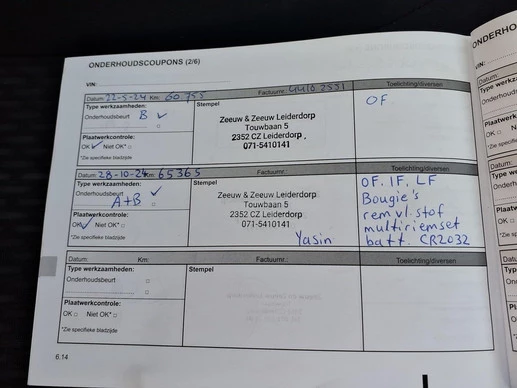 ONDERHOUDSCOUPONS (2/6)
VIN:
Datum: 22-5-24 Km: 60.755 Factuurnr.: Toelichting/diversen
Type werkzaamheden:
Onderhoudsbeurt B ✓
Plaatwerkcontrole:
OK ✓ Niet OK* □
*Zie specifieke bladzijde
Stempel
Zeeuw & Zeeuw Leiderdorp
Touwbaan 5
2352 CZ Leiderdorp
071-5410141
OF
Datum: 28-10-24 Km: 65365 Factuurnr.: Toelichting/diversen
Type werkzaamheden:
Onderhoudsbeurt ✓
A+B
Plaatwerkcontrole:
OK ✓ Niet OK* □
*Zie specifieke bladzijde
Stempel
Zeeuw & Zeeuw Leiderdorp
Touwbaan 5
2352 CZ Leiderdorp
071-5410141
Yasin
OF. IF. LF
Bougie's
rem vl. stof
multiriemset
batt. CR2032
Datum: Km: Factuurnr.: Toelichting/diversen
Type werkzaamheden:
Onderhoudsbeurt □
□
Plaatwerkcontrole:
OK □ Niet OK* □
*Zie specifieke bladzijde
Stempel
6.14
ONDERHO
VIN:
Datum:
Type we
Onderho
Plaatwe
OK □ N
*Zie specif
Datum:
Type we
Onderho
Plaatwe
OK □
*Zie spe
Datum
Type
Onde
Plaa
OK
*Zie